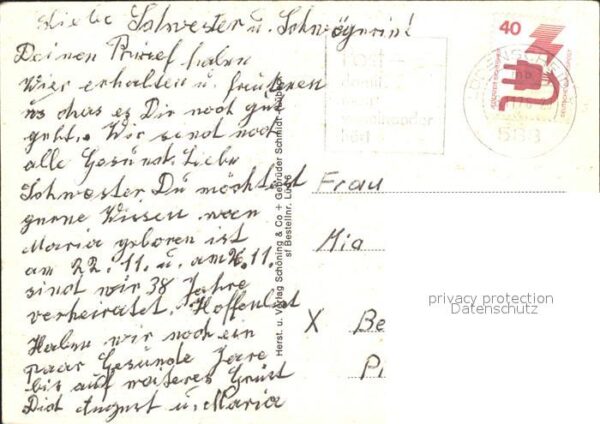 Liebe Schwester u. Schwögerin!
Deinen Brief haben
Wier erhalten u. freueren
uns das es Dir noch gut
geht. Wir sind noch
alle Gesund. Liebe
Schwester Du möchtest
gerne Wissen wan
Maria geboren ist
am 22. 11. u. am 26. 11.
sind wir 38 Jahre
verheiratet. Hoffenlich
Haben wir noch ein
paar Gesunde Jare
bis auf weiteres Grüst
Dich August u. Maria
Herst. u. Verlag Schöning & Co + Gebrüder Schmidt
sf Bestellnr. Lü
40
DEUTSCHE BUNDESPOST
588
Frau
Mia
X Be
P
privacy protection
Datenschutz